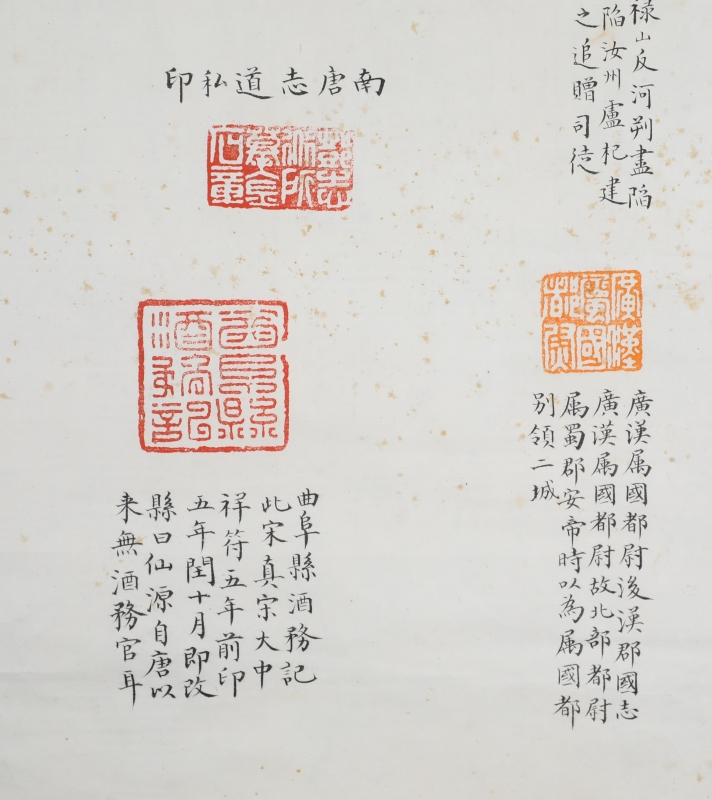 禄山反河朔盡陷
陷汝州盧杞建
之追贈司徒
廣漢
屬國
都尉
廣漢属國都尉後漢郡國志
廣漢属國都尉故北部都尉
属蜀郡安帝時以為属國都
别領二城
南唐志道私印
曲阜縣酒務記
此宋真宋大中
祥符五年前印
五年閏十月即改
縣曰仙源自唐以
来無酒務官耳